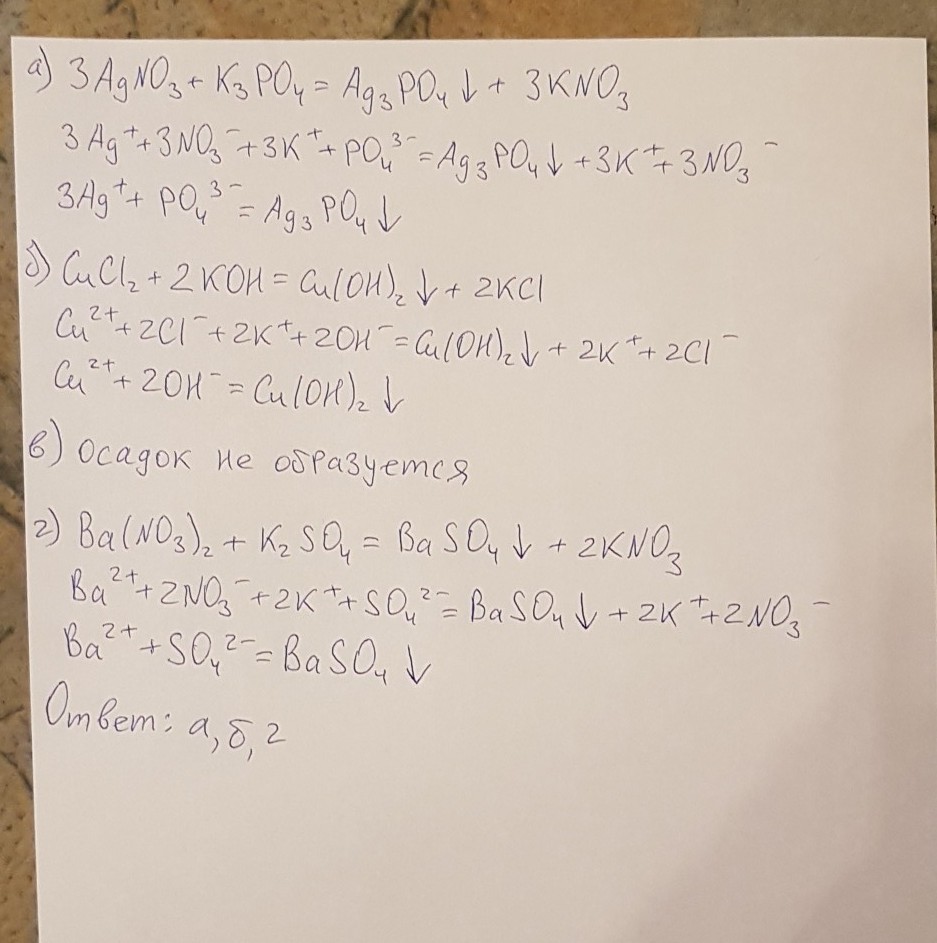 а) 3AgNO₃ + K₃PO₄ = Ag₃PO₄↓ + 3KNO₃
3Ag⁺ + 3NO₃⁻ + 3K⁺ + PO₄³⁻ = Ag₃PO₄↓ + 3K⁺ + 3NO₃⁻
3Ag⁺ + PO₄³⁻ = Ag₃PO₄↓
б) CuCl₂ + 2KOH = Cu(OH)₂↓ + 2KCl
Cu²⁺ + 2Cl⁻ + 2K⁺ + 2OH⁻ = Cu(OH)₂↓ + 2K⁺ + 2Cl⁻
Cu²⁺ + 2OH⁻ = Cu(OH)₂↓
в) осадок не образуется
г) Ba(NO₃)₂ + K₂SO₄ = BaSO₄↓ + 2KNO₃
Ba²⁺ + 2NO₃⁻ + 2K⁺ + SO₄²⁻ = BaSO₄↓ + 2K⁺ + 2NO₃⁻
Ba²⁺ + SO₄²⁻ = BaSO₄↓
Ответ: а, б, г